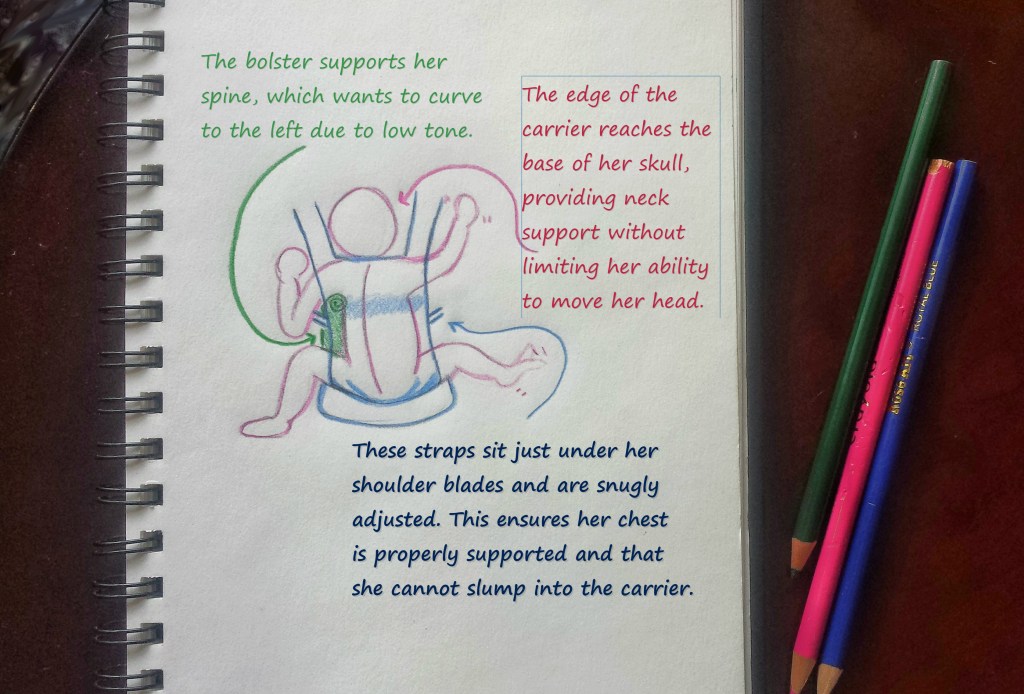 The bolster supports her
spine, which wants to curve
to the left due to low tone.
The edge of the
carrier reaches the
base of her skull,
providing neck
support without
limiting her ability
to move her head.
These straps sit just under her
shoulder blades and are snugly
adjusted. This ensures her chest
is properly supported and that
she cannot slump into the carrier.
ROYAL BLUE